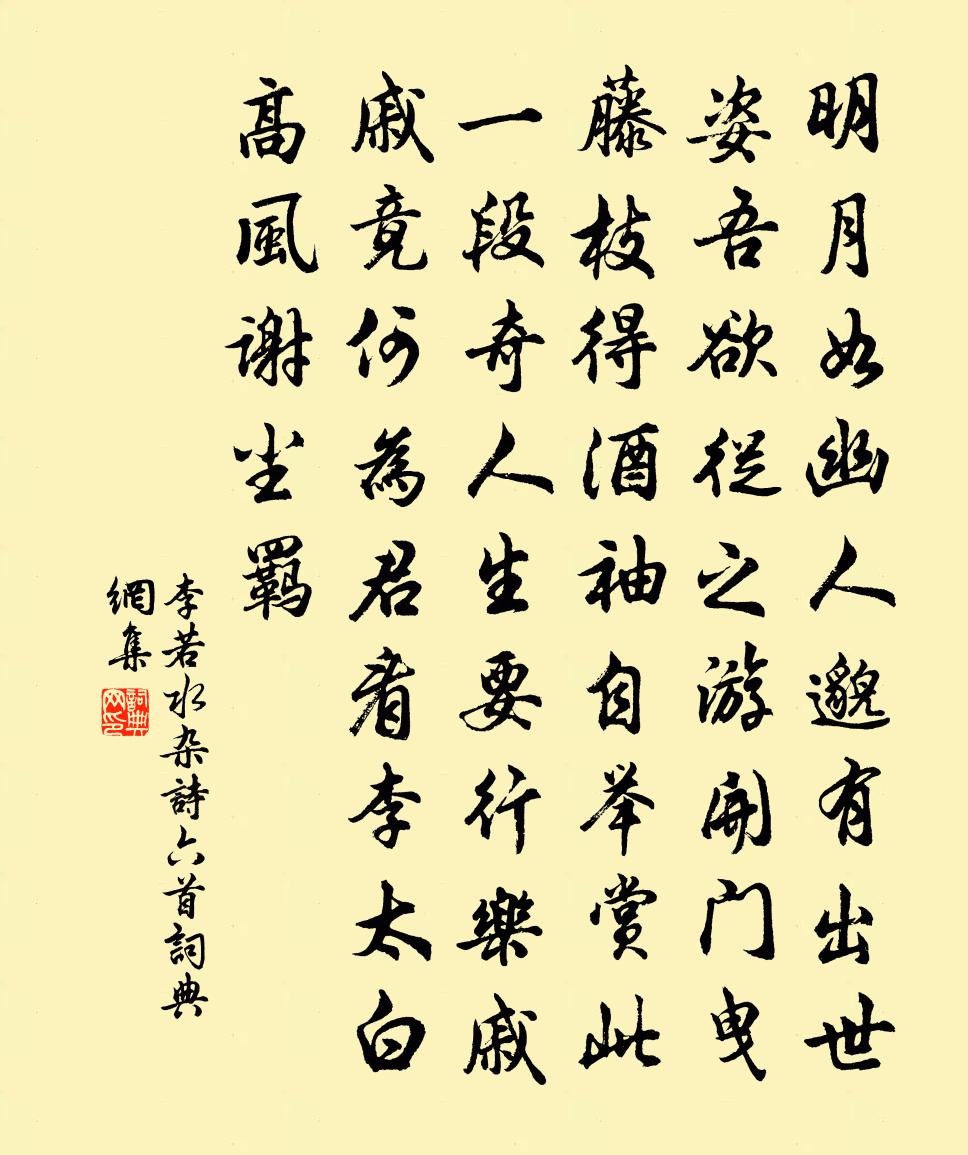 明月如幽人邈有出世
姿吾欲從之游開門曳
藤枝得酒袖自举賞此
一段奇人生要行樂戚
戚竟何為君看李太白
高風謝尘羈
李若水杂詩六首詞典
網集
詞典网印